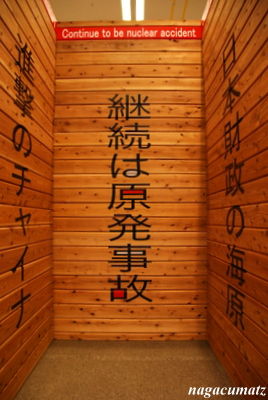 Continue to be nuclear accident
日本財政の海原
継続は原発事故
進撃のチャイナ
nagacumatz